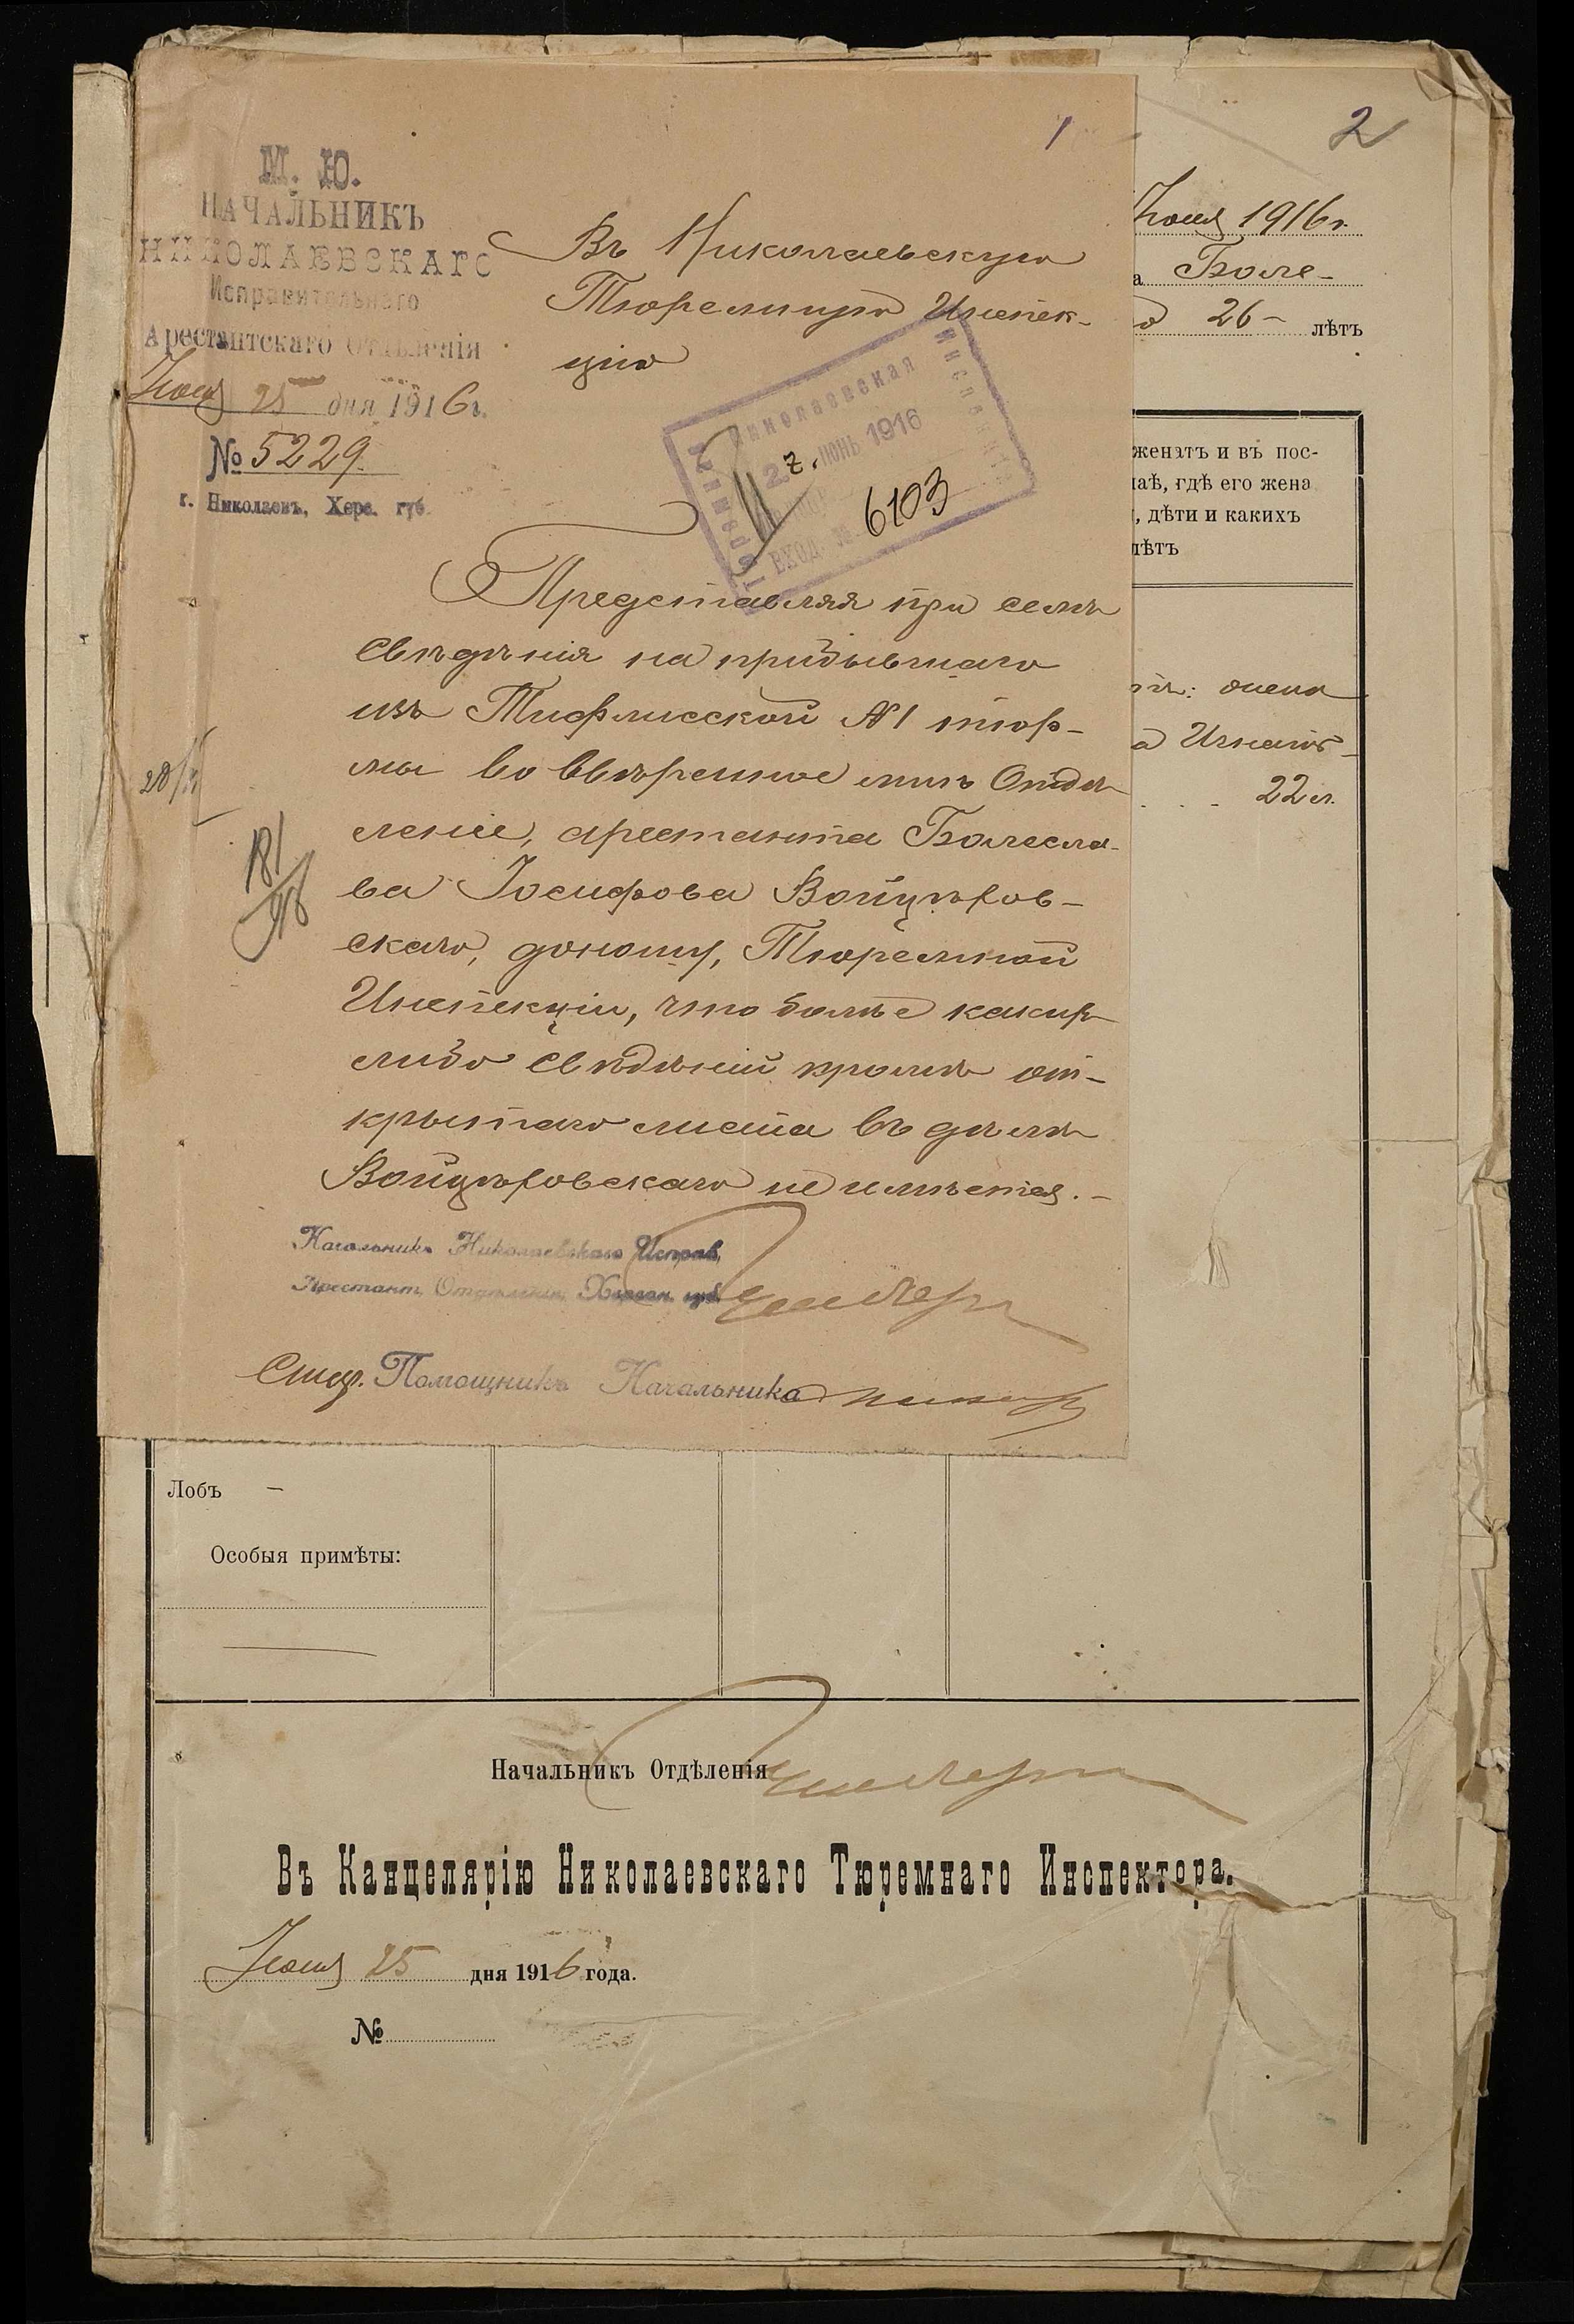 1
2
М. Ю.
НАЧАЛЬНИКЪ
НИКОЛАЕВСКАГО
Исправительнаго
Арестантскаго Отдѣленія
Іюня 25 дня 1916 г.
№ 5229.
г. Николаевъ, Херс. губ.
Въ Николаевскую
Тюремную Инспек-
цію
Николаевская
Тюремная
Инспекція
27. ІЮНЬ 1916
ВХОД. № 6103
Представляя при семъ
свѣдѣнія на прибывшаго
изъ Тифлисской №1 тюр-
мы во ввѣренное мнѣ Отдѣ-
леніе, арестанта Болесла-
ва Іосифова Войцѣхов-
скаго, доношу, Тюремной
Инспекціи, что болѣе какихъ
либо свѣдѣній кромѣ от-
крытаго листа въ дѣлѣ
Войцѣховскаго не имѣется.-
181
916
Начальникъ Николаевскаго Исправ.
Арестант. Отдѣленія, Херсон. губ.
Помощникъ Начальника
Іюня 1916 г.
а Боле-
26- лѣтъ
женатъ и въ пос-
чаѣ, гдѣ его жена
, дѣти и какихъ
лѣтъ
жена
22 л.
Лобъ -
Особыя примѣты:
Начальникъ Отдѣленія
Въ Канцелярію Николаевскаго Тюремнаго Инспектора.
Іюня 25 дня 1916 года.
№